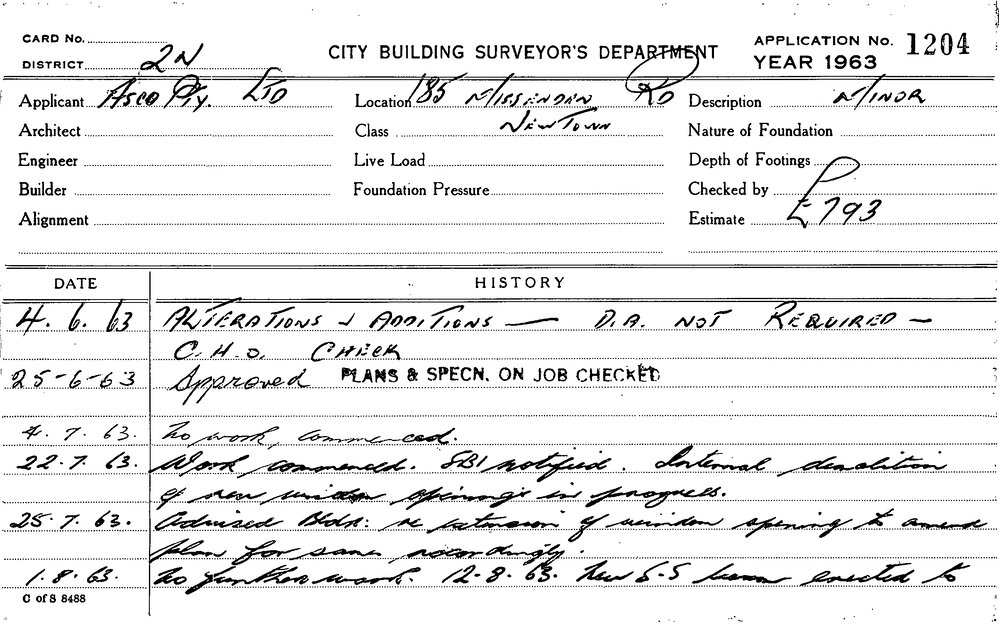 CARD No.
DISTRICT 2N
CITY BUILDING SURVEYOR'S DEPARTMENT
APPLICATION No. 1204
YEAR 1963
Applicant Asco Pty. LTD
Location 185 MISSENDEN RD
Description MINOR
Architect
Class NEWTOWN
Nature of Foundation
Engineer
Live Load
Depth of Footings
Builder
Foundation Pressure
Checked by
Alignment
Estimate £793
DATE
HISTORY
4. 6. 63 ALTERATIONS & ADDITIONS — D.A. NOT REQUIRED —
C.H.O. CHECK
25-6-63 Approved PLANS & SPECN. ON JOB CHECKED
4. 7. 63. No work commenced.
22.7. 63. Work commenced. SBI notified. Internal demolition
of new window openings in progress.
25.7. 63. Advised Bldr: re extension of window opening to amend
plan for same accordingly.
1.8.63. No further work. 12.8.63. New S.S beam erected to
C of S 8488